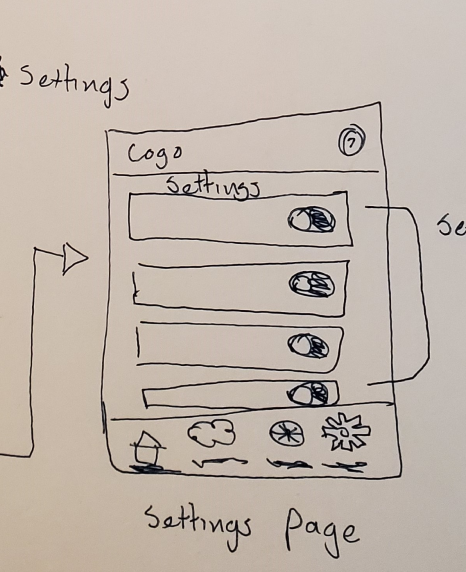 Settings
Logo ?
Settings
Se
Settings Page